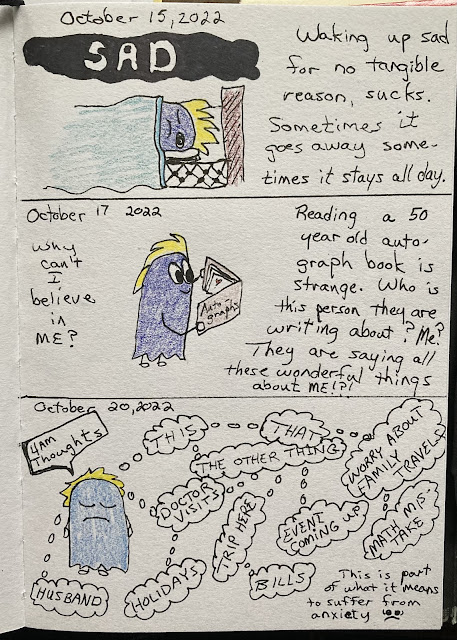 October 15, 2022
SAD
Waking up sad
for no tangible
reason, sucks.
Sometimes it
goes away some-
times it stays all day.
October 17 2022
why
can't
I
believe
in
ME?
Auto-
graphs
Reading a 50
year old auto-
graph book is
strange. Who is
this person they are
writing about? Me?
They are saying all
these wonderful things
about ME!?!
October 20, 2022
4AM
Thoughts
THIS
THAT
THE OTHER THING
WORRY ABOUT
FAMILY TRAVELS
DOCTOR
VISITS
TRIP HERE
EVENT
COMING UP
MATH MIS-
TAKE
HUSBAND
HOLIDAYS
BILLS
This is part
of what it means
to suffer from
anxiety